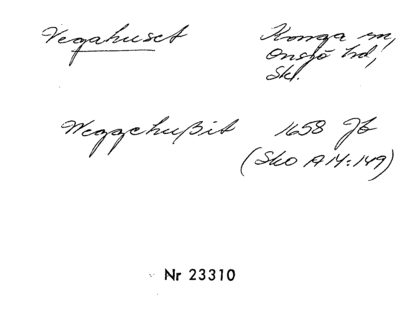 Vegahuset Konga sn,
Onsjö hd,
Skl.
Weggehußit 1658 Jb
(Skο A 14:149)
Nr 23310